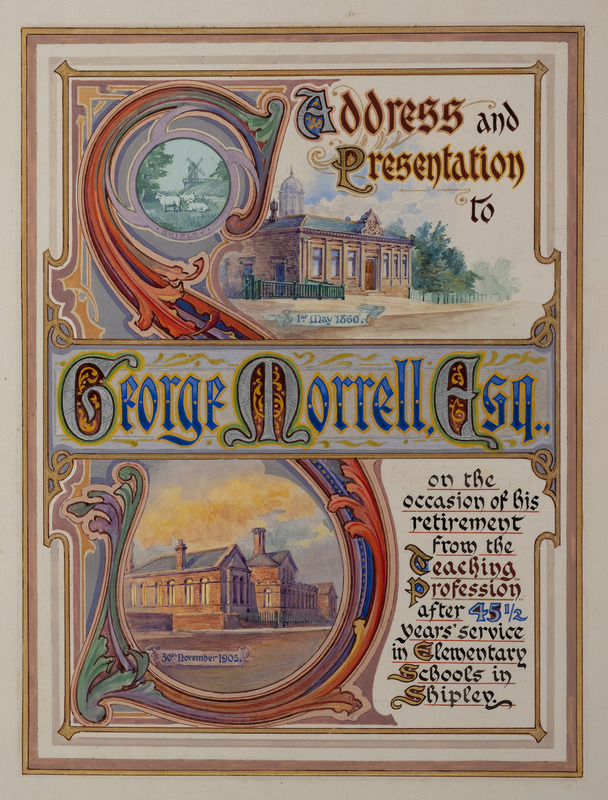 Address and
Presentation
to
SHIPLEY
1st May 1860.
George Morrell, Esq.,
on the
occasion of his
retirement
from the
Teaching
Profession
after 45 1/2
years' service
in Elementary
Schools in
Shipley.
30th November 1905.